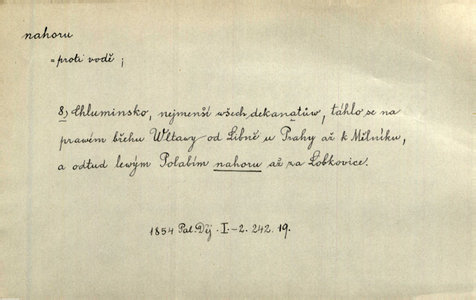 nahoru
= proti vodě ;
8) Chluminsko, nejmenší wšech dekanatůw, táhlo se na
prawém břehu Wltawy od Libně u Prahy až k Mělníku,
a odtud lewým Polabím nahoru až za Lobkovice.
1854 Pal. Děj. I-2. 242. 19.